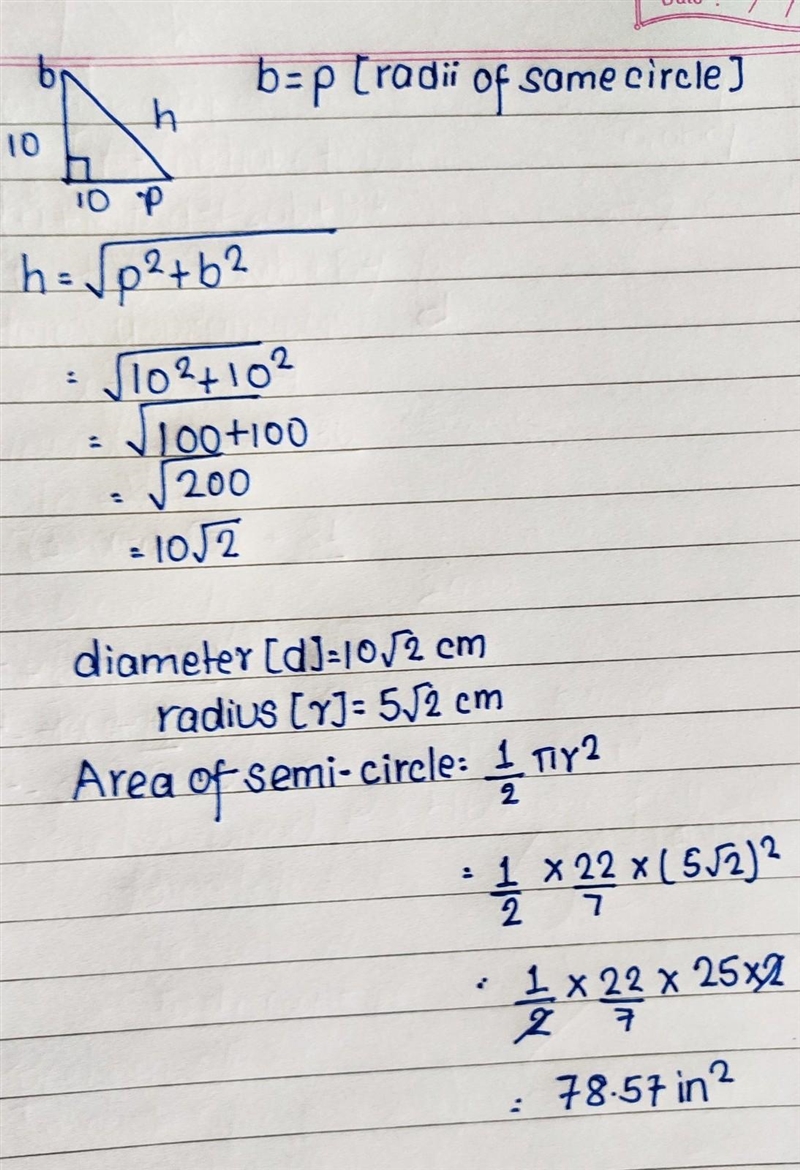 b
b=p [radii of same circle]
h
10
10 p
h = √p²+b²
= √10²+10²
= √100+100
= √200
= 10√2
diameter [d]=10√2 cm
radius [r]= 5√2 cm
Area of semi-circle= 1/2 πr²
= 1/2 × 22/7 × (5√2)²
· 1/2 × 22/7 × 25×2
= 78.57 in²